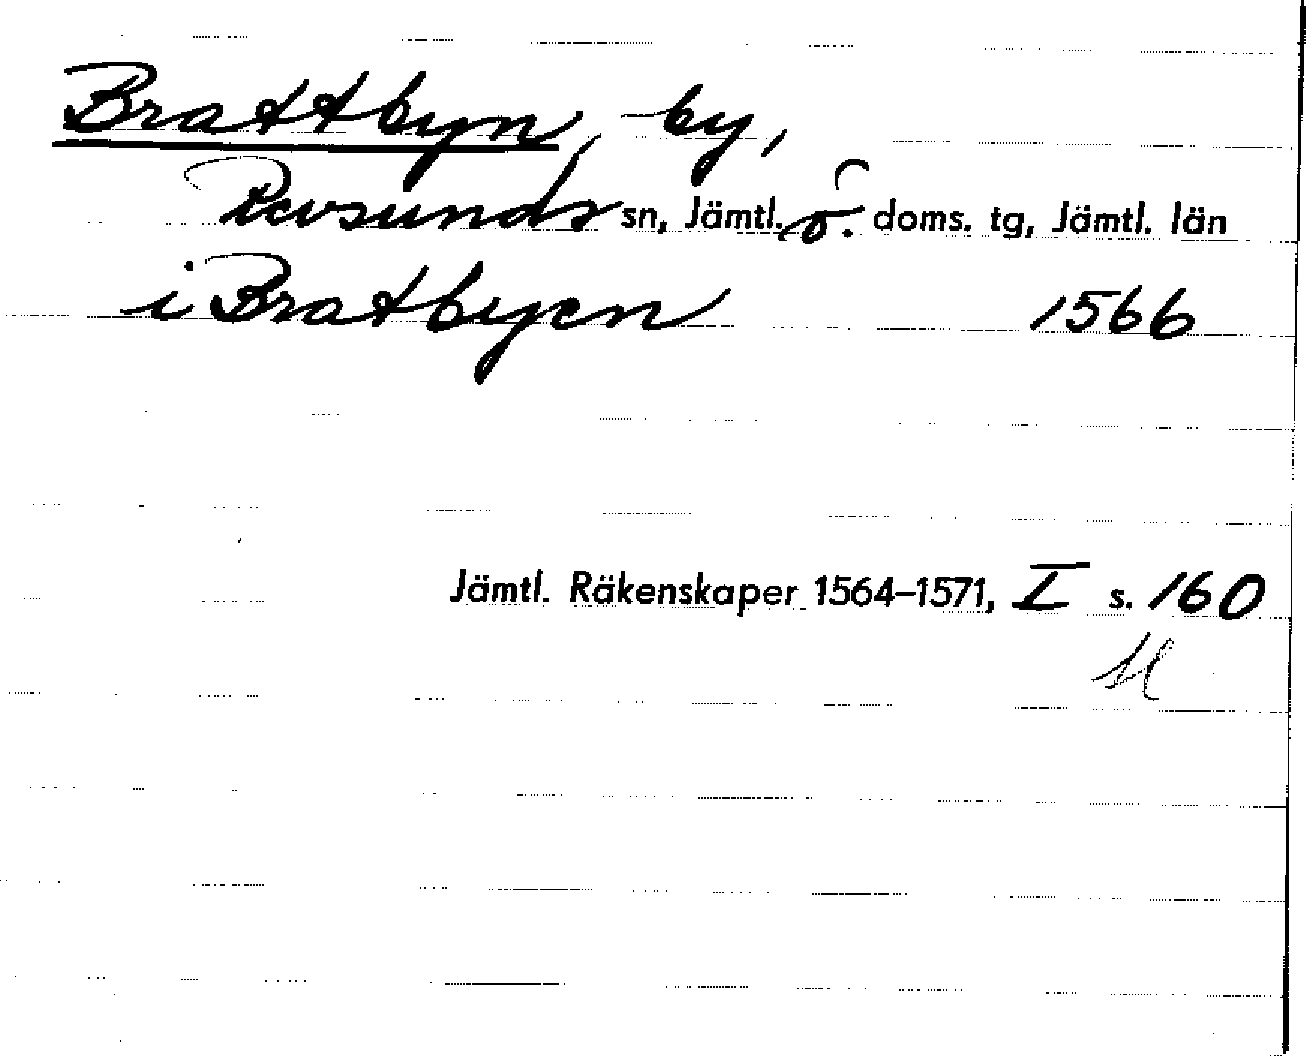 Brattbyn, by,
Revsunds sn, Jämtl. ö. doms. tg, Jämtl. län
i Bratbyen 1566
Jämtl. Räkenskaper 1564–1571, I s. 160